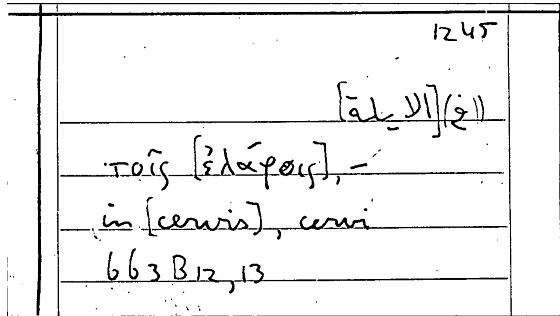 1245
(في) [الايلة]
τοῖς [ἐλάφοις], –
in [cervis], cervi
663 B 12, 13